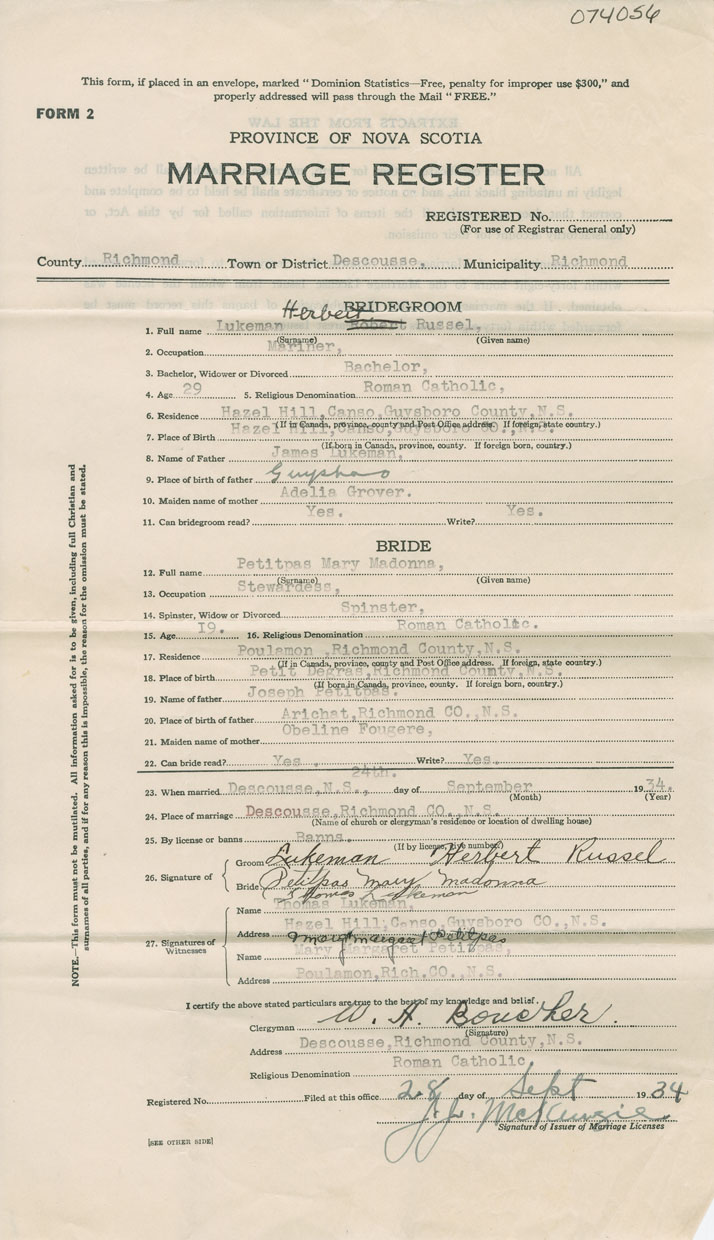 074056
This form, if placed in an envelope, marked "Dominion Statistics—Free, penalty for improper use $300," and
properly addressed will pass through the Mail "FREE."
FORM 2
PROVINCE OF NOVA SCOTIA
MARRIAGE REGISTER
REGISTERED No.
(For use of Registrar General only)
County Richmond Town or District Descousse, Municipality Richmond
BRIDEGROOM
Herbert
1. Full name Lukeman Robert Russel,
(Surname) (Given name)
2. Occupation Mariner,
3. Bachelor, Widower or Divorced Bachelor,
4. Age 29 5. Religious Denomination Roman Catholic,
6. Residence Hazel Hill,Canso,Guysboro County,N.S.
(If in Canada, province, county and Post Office address. If foreign, state country.)
7. Place of Birth Hazel Hill,Canso,Guysboro CO.,N.S.
(If born in Canada, province, county. If foreign born, country.)
8. Name of Father James Lukeman,
9. Place of birth of father Guysboro
10. Maiden name of mother Adelia Grover.
11. Can bridegroom read? Yes. Write? Yes.
BRIDE
12. Full name Petitpas Mary Madonna,
(Surname) (Given name)
13. Occupation Stewardess,
14. Spinster, Widow or Divorced Spinster,
15. Age I9. 16. Religious Denomination Roman Catholic.
17. Residence Poulamon ,Richmond County,N.S.
(If in Canada, province, county and Post Office address. If foreign, state country.)
18. Place of birth Petit Degras,Richmond County,N.S.
(If born in Canada, province, county. If foreign born, country.)
19. Name of father Joseph Petitpas.
20. Place of birth of father Arichat,Richmond CO.,N.S.
21. Maiden name of mother Obeline Fougere,
22. Can bride read? Yes. Write? Yes.
23. When married Descousse,N.S., 24th. day of September 1934.
(Month) (Year)
24. Place of marriage Descousse,Richmond CO.,N.S.
(Name of church or clergyman's residence or location of dwelling house)
25. By license or banns Banns.
(If by license, give number)
26. Signature of
Groom Lukeman Herbert Russel
Bride Petitpas Mary Madonna
Thomas Lukeman
27. Signatures of Witnesses
Name Thomas Lukeman,
Address Hazel Hill,Canso,Guysboro CO.,N.S.
Mary Margaret Petitpas
Name Mary Margaret Petitpas,
Address Poulamon,Rich.CO.,N.S.
I certify the above stated particulars are true to the best of my knowledge and belief.
Clergyman W. A. Boucher.
(Signature)
Address Descousse,Richmond County,N.S.
Religious Denomination Roman Catholic,
Registered No. Filed at this office 28 day of Sept 1934
J. L. McKenzie
Signature of Issuer of Marriage Licenses
[SEE OTHER SIDE]
NOTE.—This form must not be mutilated. All information asked for is to be given, including full Christian and
surnames of all parties, and if for any reason this is impossible, the reason for the omission must be stated.